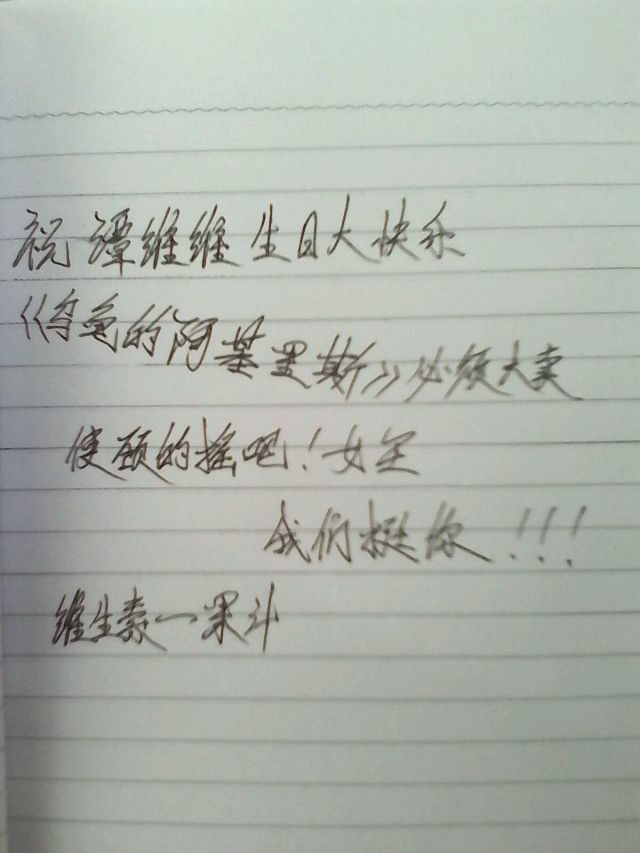 祝谭维维生日大快乐
《乌龟的阿基里斯》必须大卖
使颈的摇吧！女王
我们挺你！！！
维生素一果斗